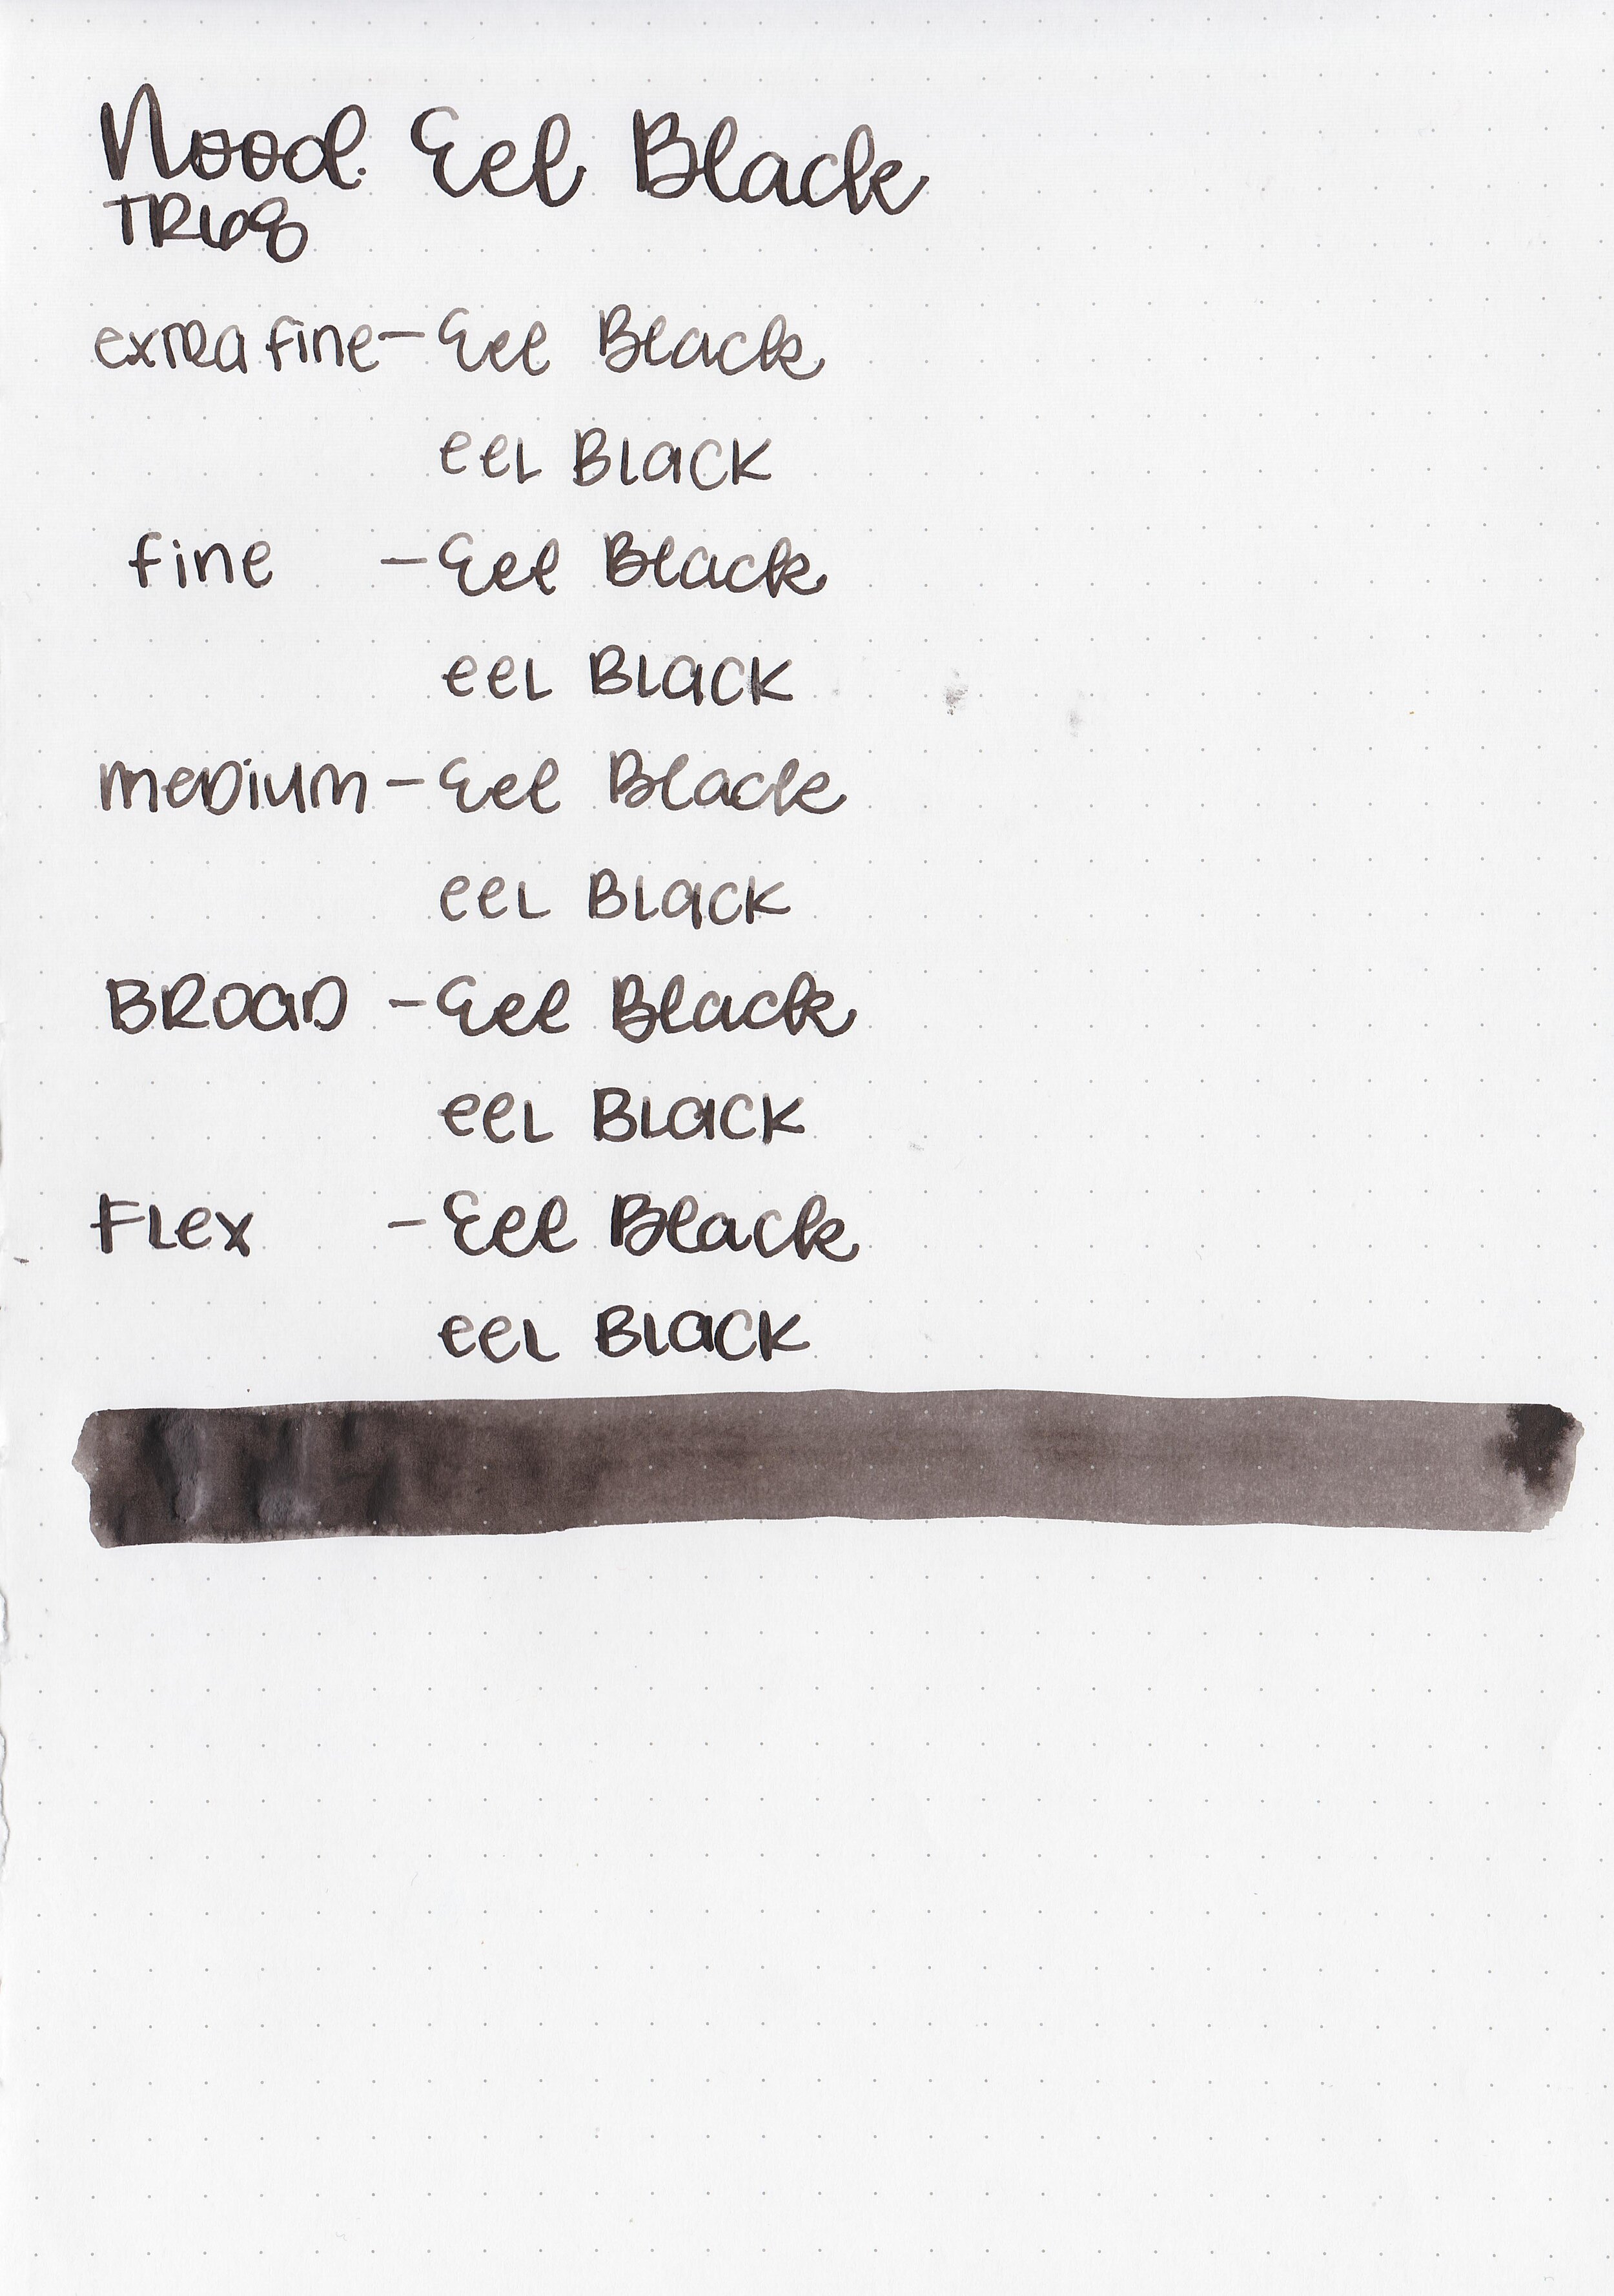 Nood. Eel Black
TR68
extra fine - Eel Black
eeL BLacK
fine - Eel Black
eeL BLacK
meDium - Eel Black
eeL BLacK
BROaD - Eel Black
eeL BLacK
FLex - Eel Black
eeL BLacK